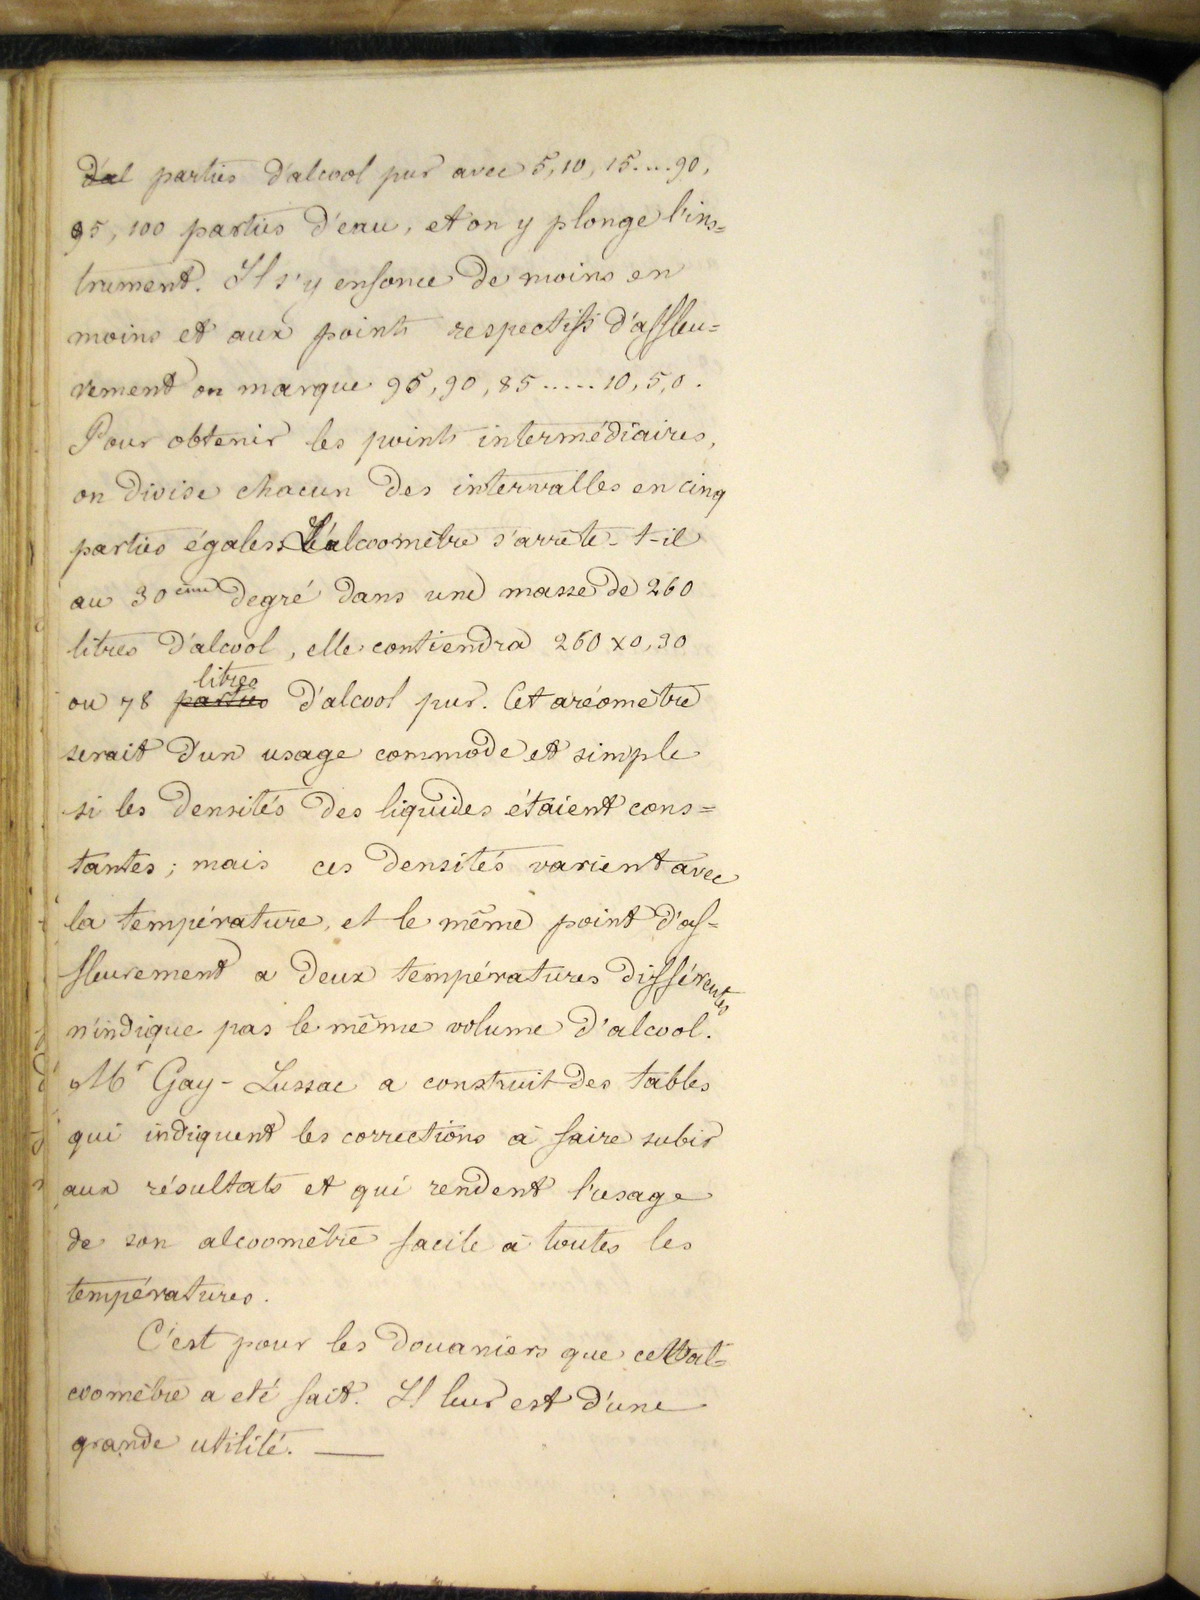 d'al parties d'alcool pur avec 5, 10, 15....90,
95, 100 parties d'eau, et on y plonge l'ins=
trument. Il s'y enfonce de moins en
moins et aux points respectifs d'affleu=
rement on marque 95, 90, 85 ..... 10, 5, 0.
Pour obtenir les points intermédiaires,
on divise chacun des intervalles en cinq
parties égales. L'alcoomètre s'arrête-t-il
au 30ème degré dans une masse de 260
litres d'alcool, elle contiendra 260 x 0,30
litres
ou 78 parties d'alcool pur. Cet aréomètre
serait d'un usage commode et simple
si les densités des liquides étaient cons=
tantes ; mais ces densités varient avec
la température, et le même point d'af=
fleurement a deux températures différentes
n'indique pas le même volume d'alcool.
Mr Gay-Lussac a construit des tables
qui indiquent les corrections à faire subir
aux résultats et qui rendent l'usage
de son alcoomètre facile à toutes les
températures.
C'est pour les douaniers que cet al=
coomètre a eté fait. Il leur est d'une
grande utilité. —